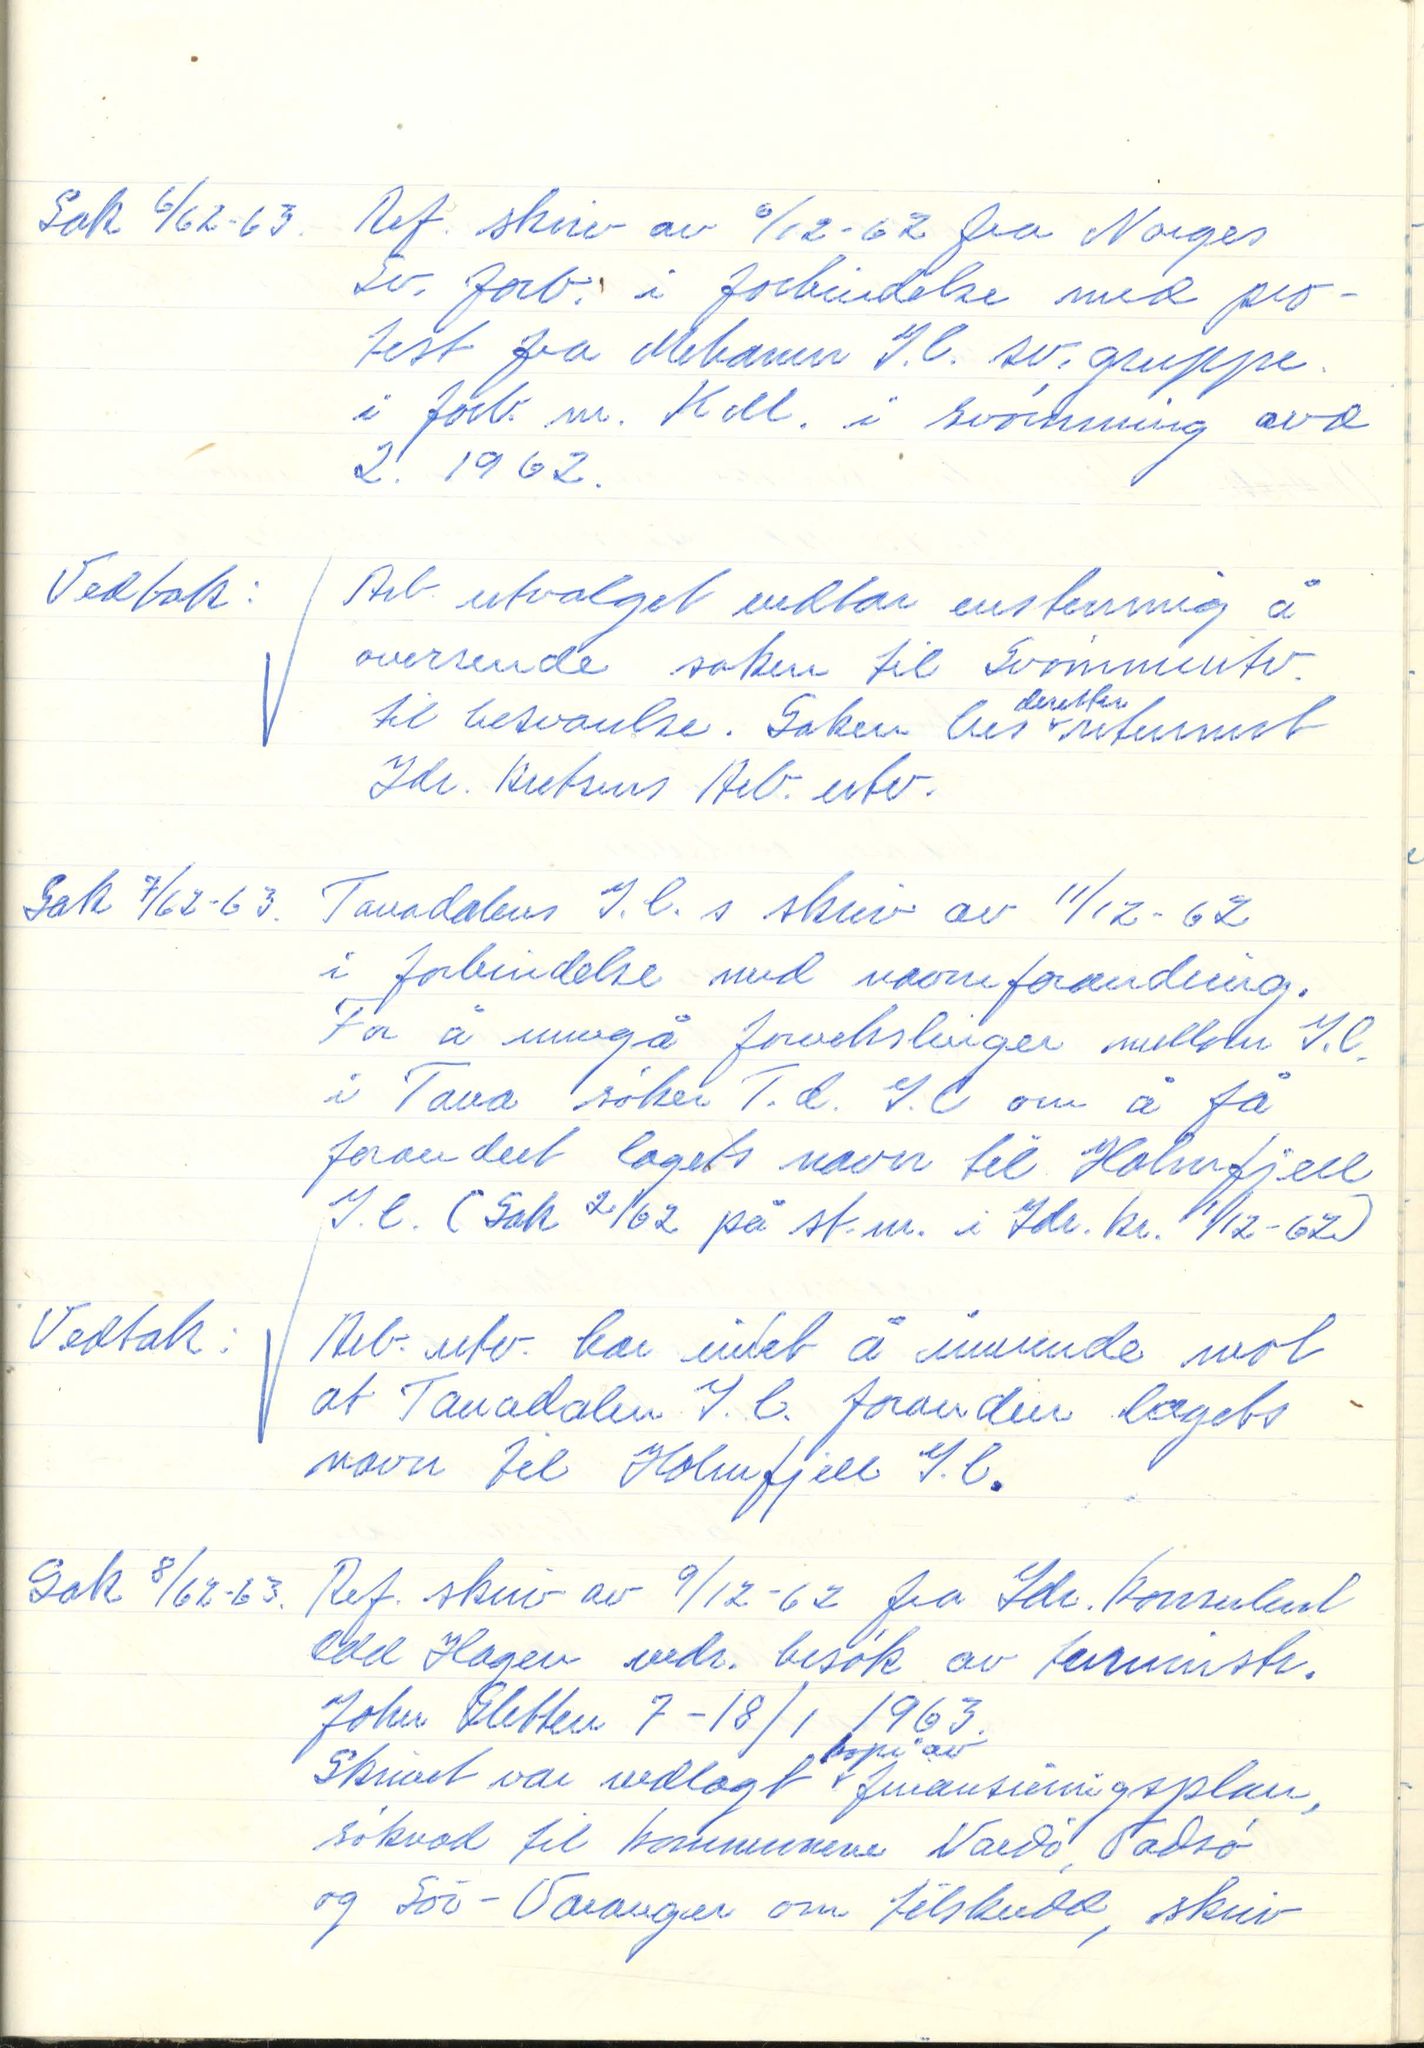 Sak 6/62-63. Ref. skriv av 6/12-62 fra Norges
Sv. forb. i forbindelse med pro-
test fra Mehamn I.l. sv. gruppe.
i forb. m. K.M. i svömming avd
2. 1962.
Vedtak: Arb. utvalget vedtar enstemmig å
oversende saken til Svömmeutv.
til besvarelse. Saken bes deretter returnert
Idr. Kretsens Arb. utv.
Sak 7/62-63. Tanadalens I.l.s skriv av 11/12-62
i forbindelse med navneforandring.
For å unngå forvekslinger mellom I.l.
i Tana söker T.d. I.l om å få
forandret lagets navn til Holmfjell
I.l. (Sak 2/62 på st.m. i Idr. kr. 1/12-62)
Vedtak: Arb. utv. har intet å innvende mot
at Tanadalen I.l. forandrer lagets
navn til Holmfjell I.l.
Sak 8/62-63. Ref. skriv av 9/12-62 fra Idr. konsulent
Odd Hagen vedr. besök av turninstr.
John Sletten 7-18/1 1963.
Skrivet var vedlagt kopi av finansieringsplan,
söknad til kommunene Vardö, Vadsö
og Sör-Varanger om tilskudd, skriv